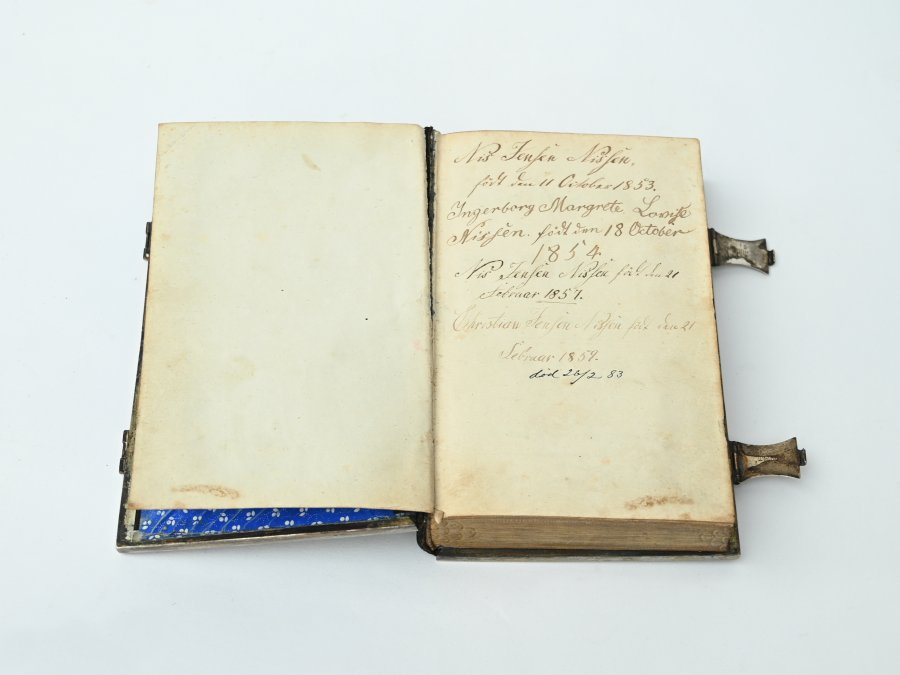 Nis Jensen Nissen,
født den 11 October 1853.
Ingerborg Margrete Lovise
Nissen. født den 18 October
1854
Nis Jensen Nissen født den 21
Februar 1857.
Christian Jensen Nissen født den 21
Februar 1859.
død 26/2 83